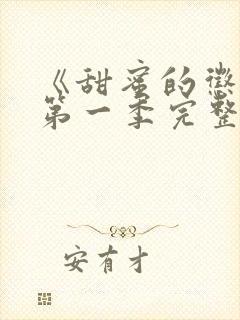 《甜蜜的惩
第一季完整
安有才